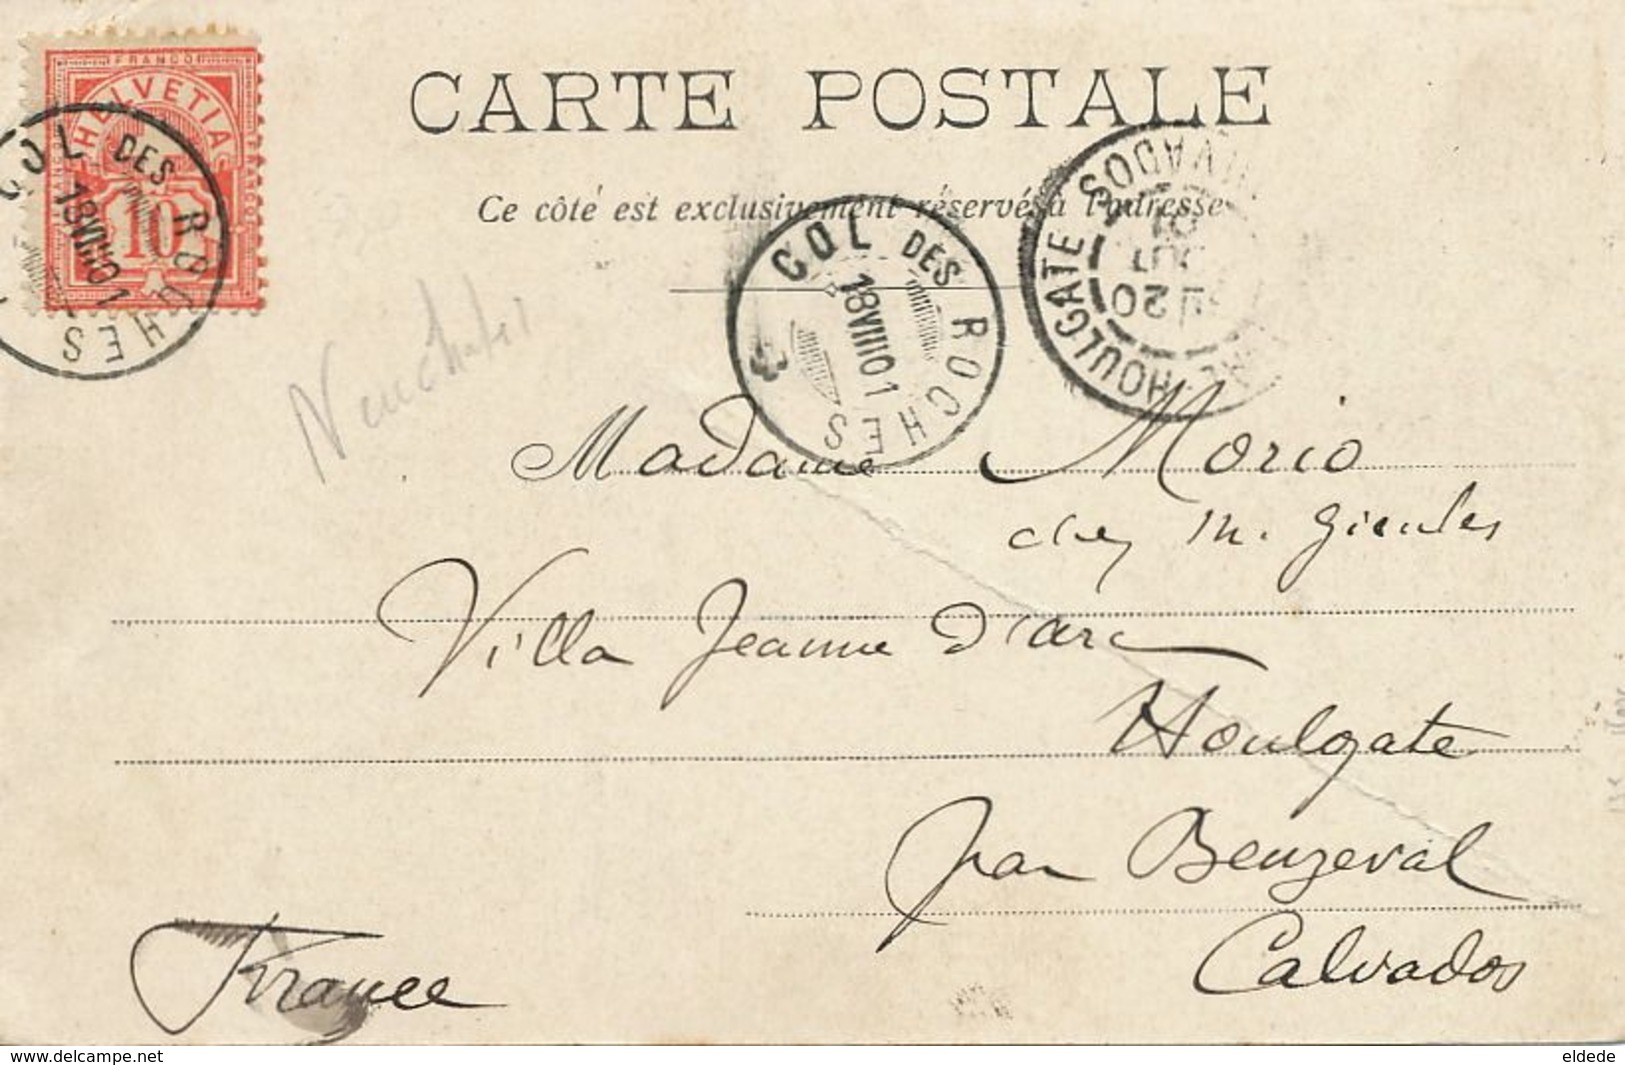 CARTE POSTALE
Ce côté est exclusivement réservé à l'adresse
FRANCO
HELVETIA
10
COL DES ROCHES
18 VIII 01
COL DES ROCHES
18 VIII 01
HOULGATE
CALVADOS
20
AOUT
01
Neuchatel
Madame Morio
chez M.
Villa Jeanne d'arc
Houlgate
par Beuzeval
Calvados
France
www.delcampe.net
eldede